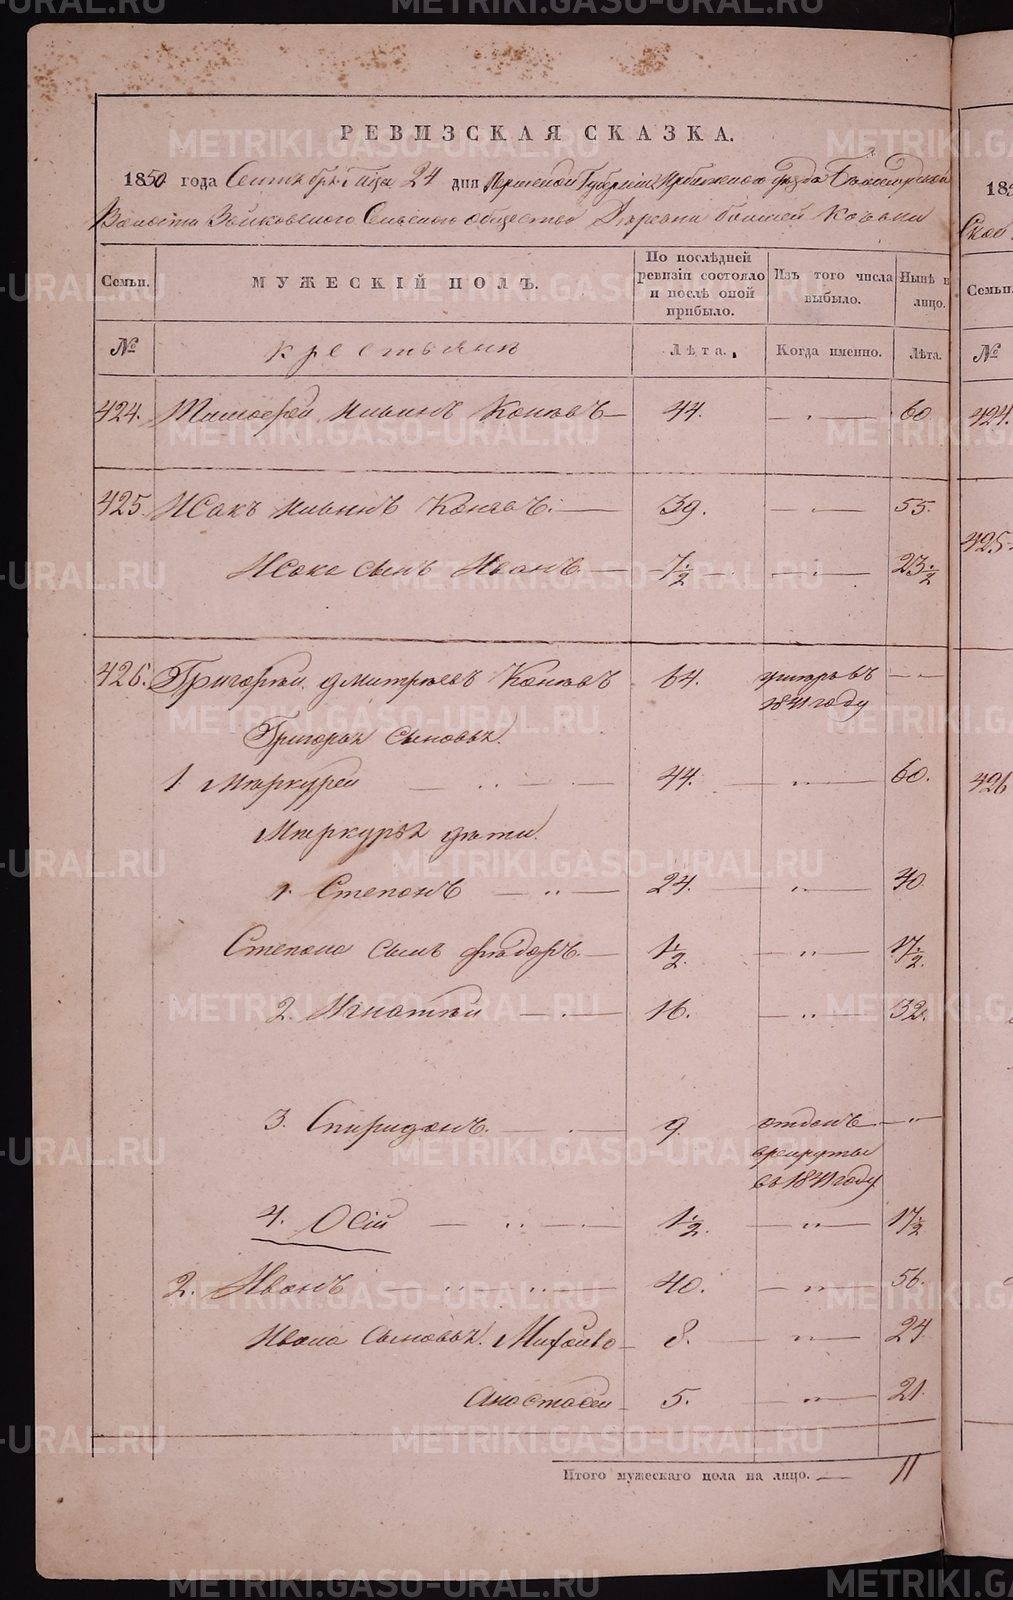 РЕВИЗСКАЯ СКАЗКА.
1850 года Сентября 24 дня Пермской Губернии Ирбитского уезда
Волости Зайковского Сельского общества Деревни большей Кочевки
Семьи. МУЖЕСКІЙ ПОЛЪ. По послѣдней ревизіи состояло и послѣ оной прибыло. Изъ того числа выбыло. Нынѣ на лицо.
№ крестьяне Лѣта. Когда именно. Лѣта.
424. Тимофей Ильинъ Коневъ 44. — „ — 60
425. Исакъ Ильинъ Коневъ. 39. — „ — 55.
Исака сынъ Иванъ 7½ — „ — 23½
426. Григорей Дмитревъ Коневъ 64. умеръ въ 1841 году — „ —
Григорья сыновья.
1 Меркурей 44. — „ — 60.
Меркурья дети.
1. Степанъ 24. — „ — 40
Степана сынъ Федоръ. 1½. — „ — 17½.
2. Игнатей 16. — „ — 32.
3. Спиридонъ. 9. отданъ в рекруты въ 1841 году — „ —
4. Осій 1½. — „ — 17½
2. Иванъ 40. — „ — 56.
Ивана сыновья. Михайло 8. — „ — 24
Анастасей 5. — „ — 21.
Итого мужескаго пола на лицо. — 11
1850
Семьи.
№
424.
425.
426
METRIKI.GASO-URAL.RU